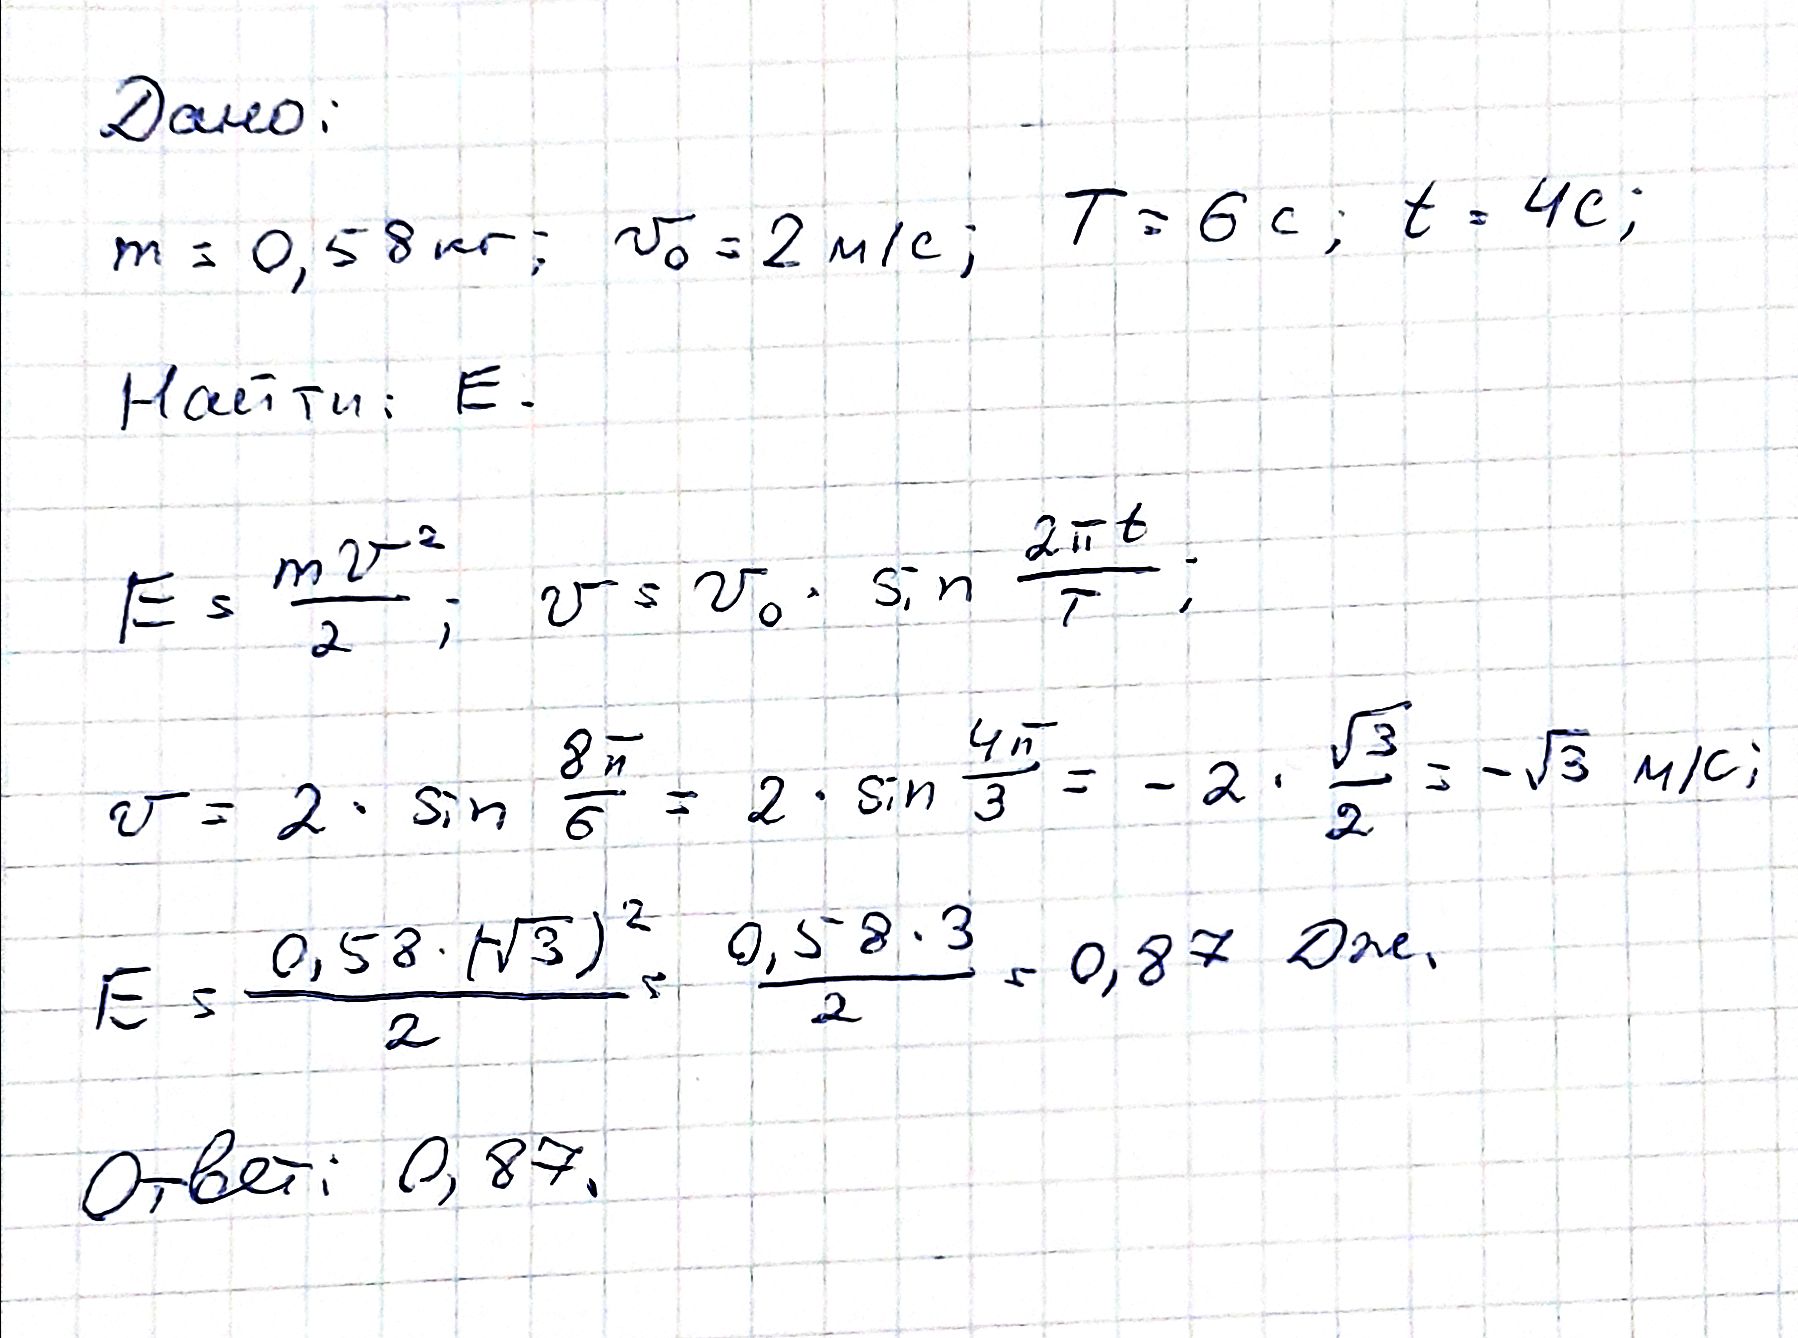 Дано:
m = 0,58 кг; v₀ = 2 м/с; T = 6 с; t = 4с;
Найти: E.
E = mv²/2; v = v₀ · sin 2πt/T;
v = 2 · sin 8π/6 = 2 · sin 4π/3 = - 2 · √3/2 = -√3 м/с;
E = 0,58 · (-√3)²/2 = 0,58 · 3/2 = 0,87 Дж.
Ответ: 0,87.